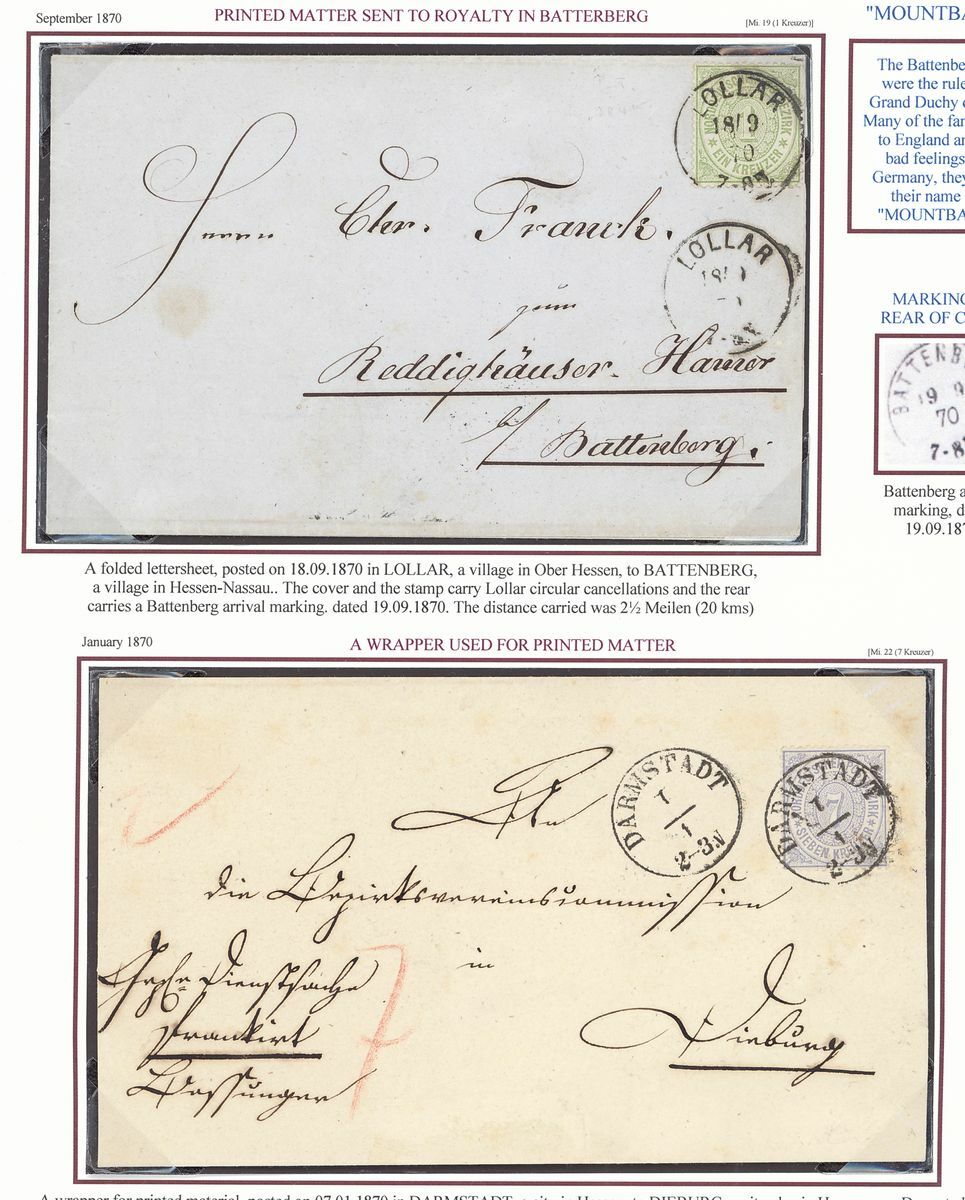 September 1870
PRINTED MATTER SENT TO ROYALTY IN BATTERBERG
[Mi. 19 (1 Kreuzer)]
LOLLAR
18/9
70
EIN KREUZER
Herrn Chr. Franck.
LOLLAR
18/9
zum
Reddighäuser Hamer
b/ Battenberg.
A folded lettersheet, posted on 18.09.1870 in LOLLAR, a village in Ober Hessen, to BATTENBERG,
a village in Hessen-Nassau.. The cover and the stamp carry Lollar circular cancellations and the rear
carries a Battenberg arrival marking. dated 19.09.1870. The distance carried was 2½ Meilen (20 kms)
"MOUNTBA
The Battenbe
were the rule
Grand Duchy
Many of the fam
to England an
bad feelings
Germany, they
their name
"MOUNTBA
MARKING
REAR OF C
BATTENB
19 9
70
7-8
Battenberg a
marking, d
19.09.187
January 1870
A WRAPPER USED FOR PRINTED MATTER
[Mi. 22 (7 Kreuzer)
DARMSTADT
7/1
2-3N
DARMSTADT
7/1
2-3N
7
SIEBEN KREUZER
An
die Bezirksvereinscommission
in
Dieburg
Dienstsache
Frankirt
7
A wrapper for printed material, posted on 07.01.1870 in DARMSTADT, a city in Hessen, to DIEBURG